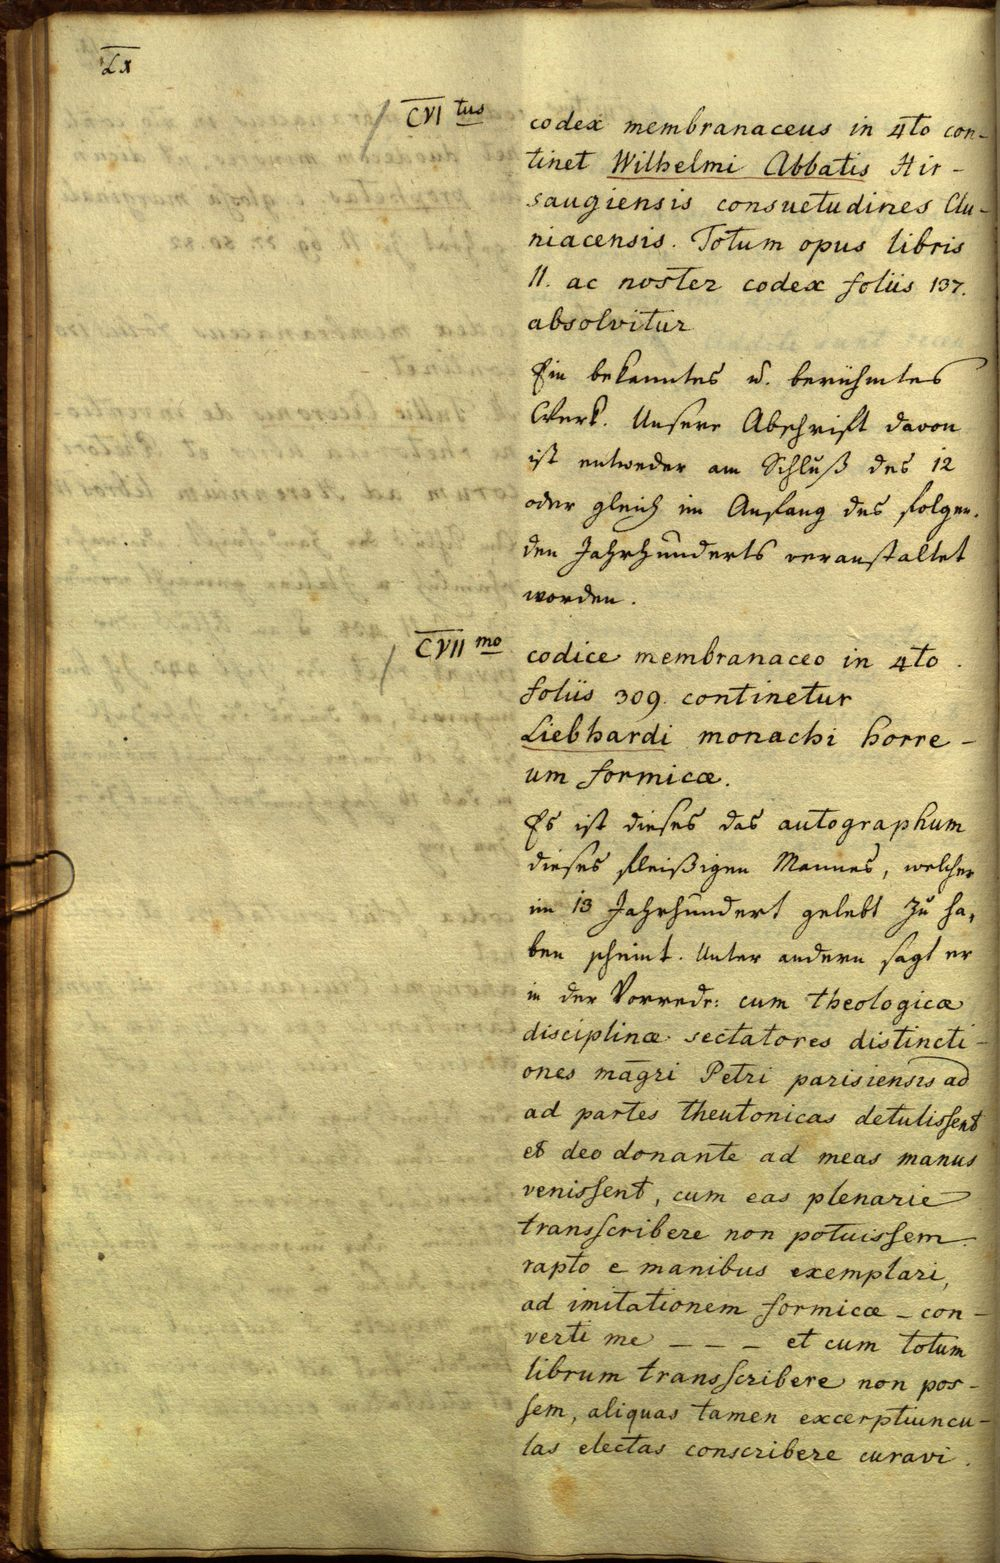 LX
CVI tus
codex membranaceus in 4to con-
tinet Wilhelmi Abbatis Hir-
saugiensis consuetudines Clu-
niacensis. Totum opus libris
II. ac noster codex foliis 137.
absolvitur
Ein bekanntes u. berühmtes
Werk. Unsere Abschrift davon
ist entweder am Schluß des 12
oder gleich im Anfang des folgen-
den Jahrhunderts veranstaltet
worden.
CVII mo
codice membranaceo in 4to.
foliis 309. continetur
Liebhardi monachi horre-
um formicæ.
Es ist dieses das autographum
dieses fleißigen Mannes, welcher
im 13 Jahrhundert gelebt zu ha-
ben scheint. Unter andern sagt er
in der Vorrede: cum theologicæ
disciplinæ sectatores distincti-
ones māgri Petri parisiensis ad
ad partes theutonicas detulissent
et deo donante ad meas manus
venissent, cum eas plenarie
transscribere non potuissem
rapto e manibus exemplari,
ad imitationem formicæ - con-
verti me - - - et cum totum
librum transscribere non pos-
sem, aliquas tamen excerptiuncu-
las electas conscribere curavi.